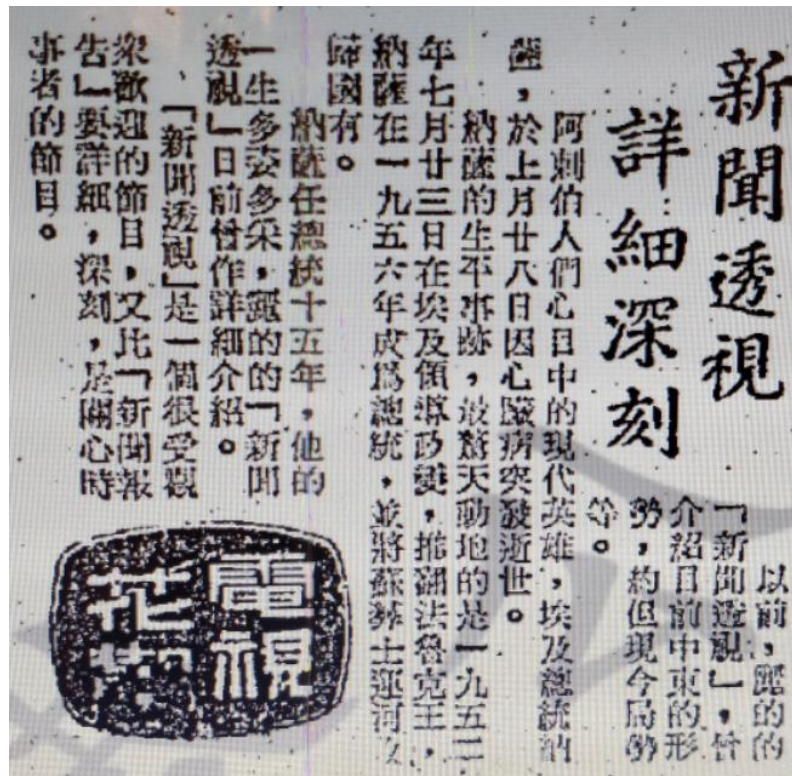 新聞透視
詳細深刻
以前，麗的的
「新聞透視」，曾
介紹目前中東的形
勢，約但現今局勢
等。
阿剌伯人們心目中的現代英雄，埃及總統納
薩，於上月廿八日因心臟病突發逝世。
納薩的生平事跡，最驚天動地的是一九五二
年七月廿三日在埃及領導政變，推翻法魯克王，
納薩在一九五六年成爲總統，並將蘇彝士運河收
歸國有。
納薩任總統十五年，他的
一生多姿多采，麗的的「新聞
透視」日前曾作詳細介紹。
「新聞透視」是一個很受觀
衆歡迎的節目，又比「新聞報
告」要詳細，深刻，是關心時
事者的節目。
電視